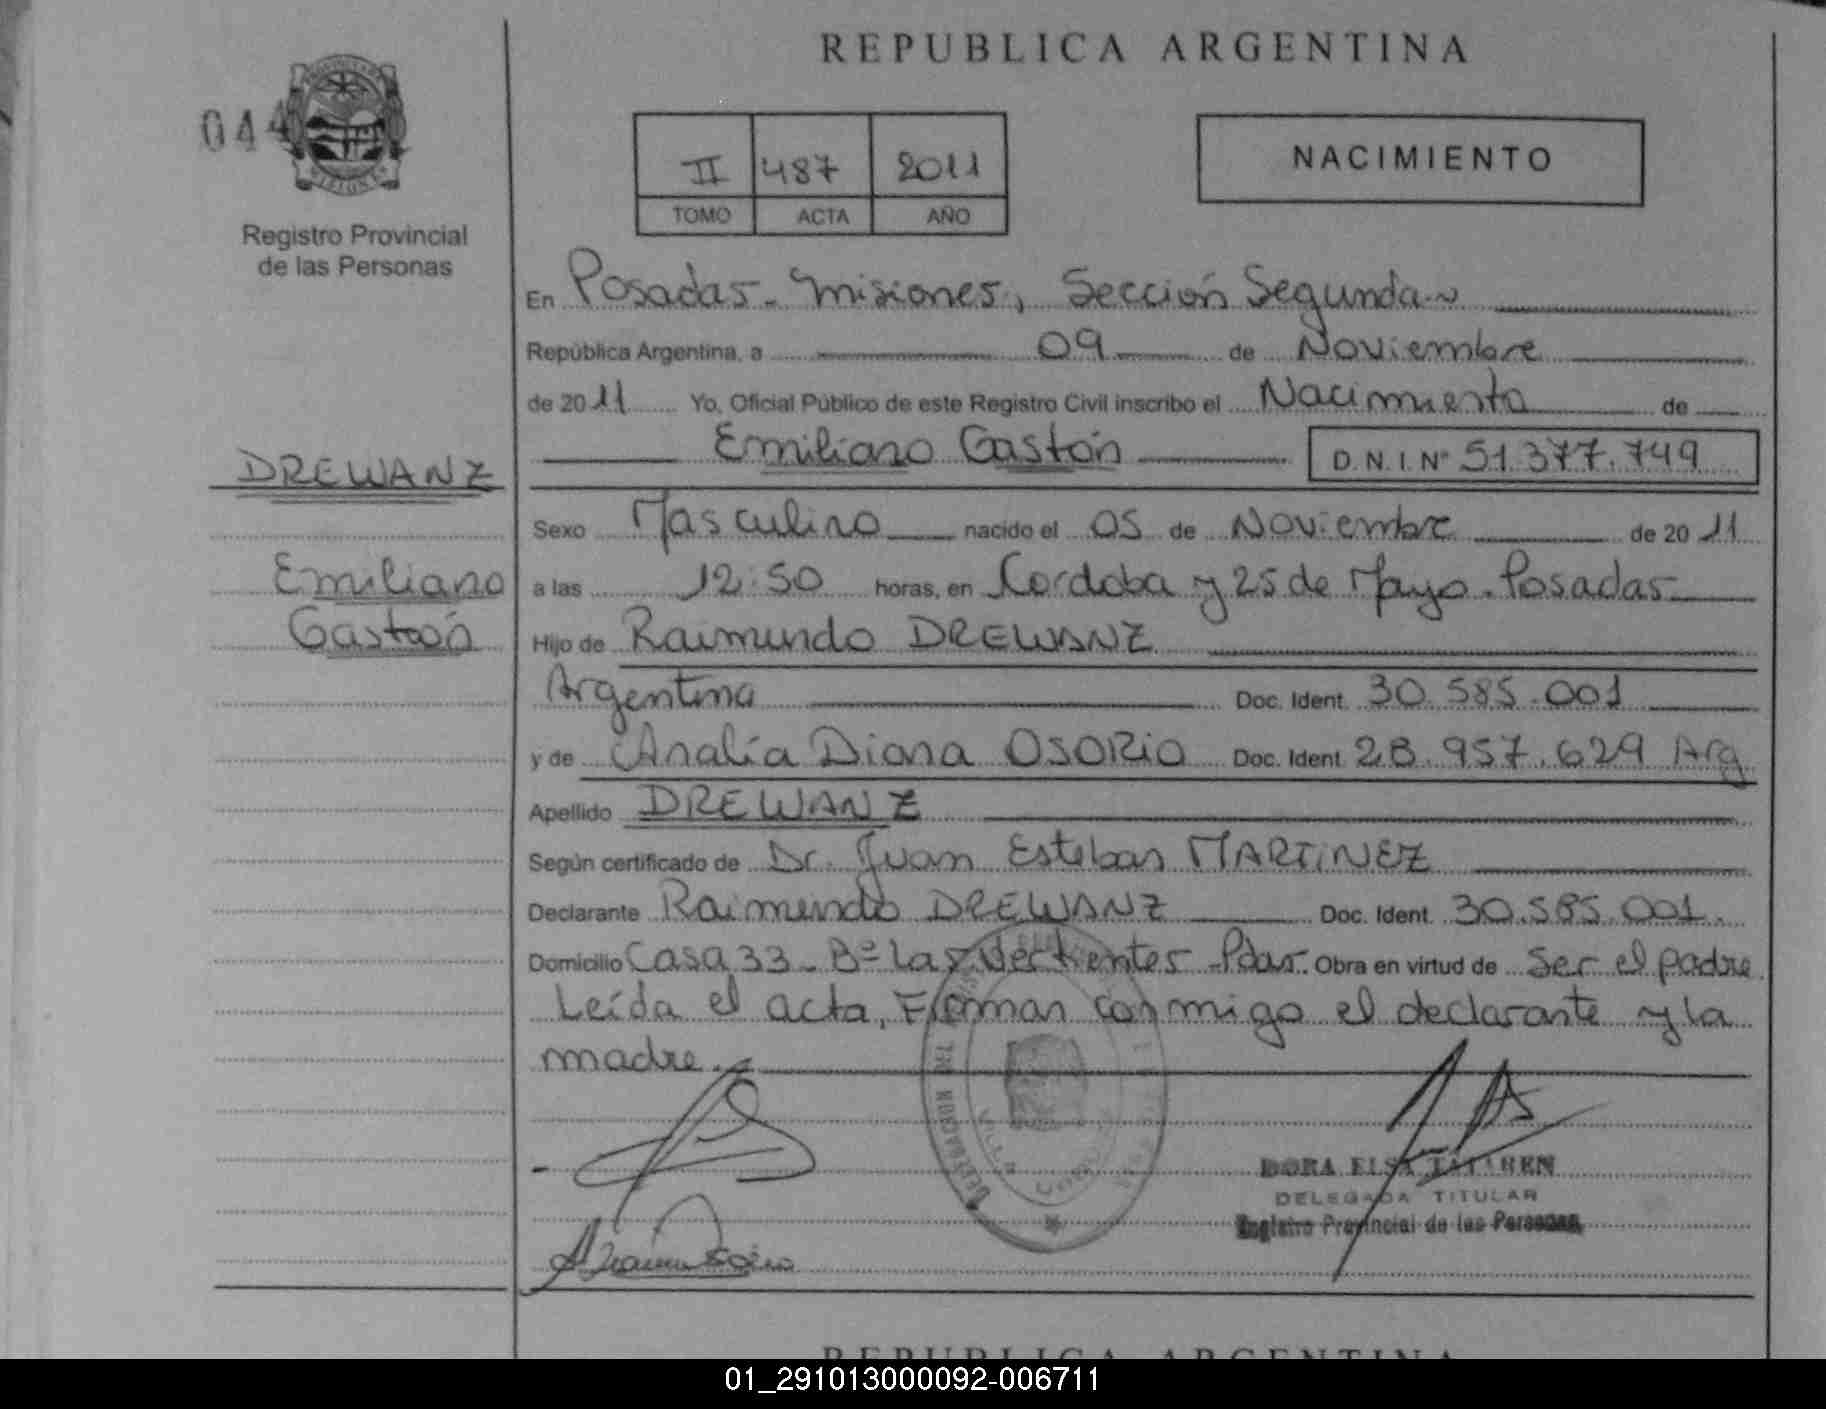 REPUBLICA ARGENTINA
044
Registro Provincial
de las Personas
II 487 2011
TOMO ACTA AÑO
NACIMIENTO
En Posadas - Misiones, Sección Segunda
República Argentina, a 09 de Noviembre
de 2011 Yo, Oficial Público de este Registro Civil inscribo el Nacimiento de
Emiliano Gastón D.N.I. Nº 51.377.749
DREWANZ
Emiliano
Gastón
Sexo Masculino nacido el 05 de Noviembre de 2011
a las 12:50 horas, en Cordoba y 25 de Mayo. Posadas
Hijo de Raimundo DREWANZ
Argentina Doc. Ident. 30.585.001
y de Analía Diana OSORIO Doc. Ident. 28.957.629 Arg
Apellido DREWANZ
Según certificado de Dr. Juan Esteban MARTINEZ
Declarante Raimundo DREWANZ Doc. Ident. 30.585.001.
Domicilio Casa 33 - Bº Las Vertientes - Pdas. Obra en virtud de Ser el padre
Leída el acta, Firman conmigo el declarante y la
madre.
DELEGADA TITULAR
DORA ELSA
Registro Provincial de las Personas
REPUBLICA ARGENTINA
01_291013000092-006711